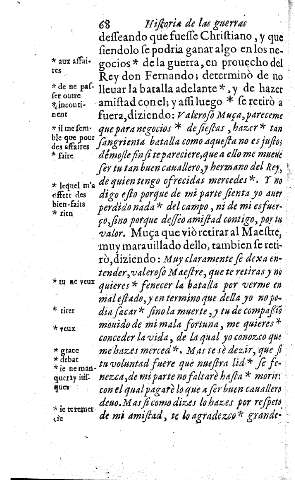 68 Historia de las guerras
desseando que fuesse Christiano, y que
siendolo se podria ganar algo en los ne
gocios * de la guerra, en prouecho del
Rey don Fernando; determinò de no
lleuar la batalla adelante *, y de hazer
amistad con el; y assi luego * se retirò a
fuera, diziendo: Valeroso Muça, pareceme
que para negocios * de fiestas, hazer * tan
sangrienta batalla como aquesta no es justo;
démosle fin si te pareciere, que a ello me mueue
ser tu tan buen cauallero, y hermano del Rey,
de quien tengo ofrecidas mercedes *. Y no
digo esto porque de mi parte sienta yo auer
perdido nada * del campo, ni de mi esfuer-
ço, sino porque desseo amistad contigo, por tu
valor. Muça que viò retirar al Maestre,
muy marauillado dello, tambien se reti-
rò, diziendo: Muy claramente se dexa en-
tender, valeroso Maestre, que te retiras y no
quieres * fenecer la batalla por verme en
mal estado, y en termino que della yo no po-
dia sacar * sino la muerte, y tu de compassiō
mouido de mi mala fortuna, me quieres *
conceder la vida, de la qual yo conozco que
me hazes merced *. Mas te sè dezir, que si
tu voluntad fuere que nuestra lid * se fe-
nezca, de mi parte no faltarè hasta * morir:
con el qual pagarè lo que a ser buen cauallero
deuo. Mas si como dizes lo hazes por respeto
de mi amistad, te lo agradezco * grande-
* aux affai-
res
* de ne pas-
ser outre
* incouti-
nent
* il me sem-
ble que pour
des affaires
* faire
* lequel m'a
* rien
* tu ne veux
* tirer
* veux
* grace
* debat
* ie ne man-